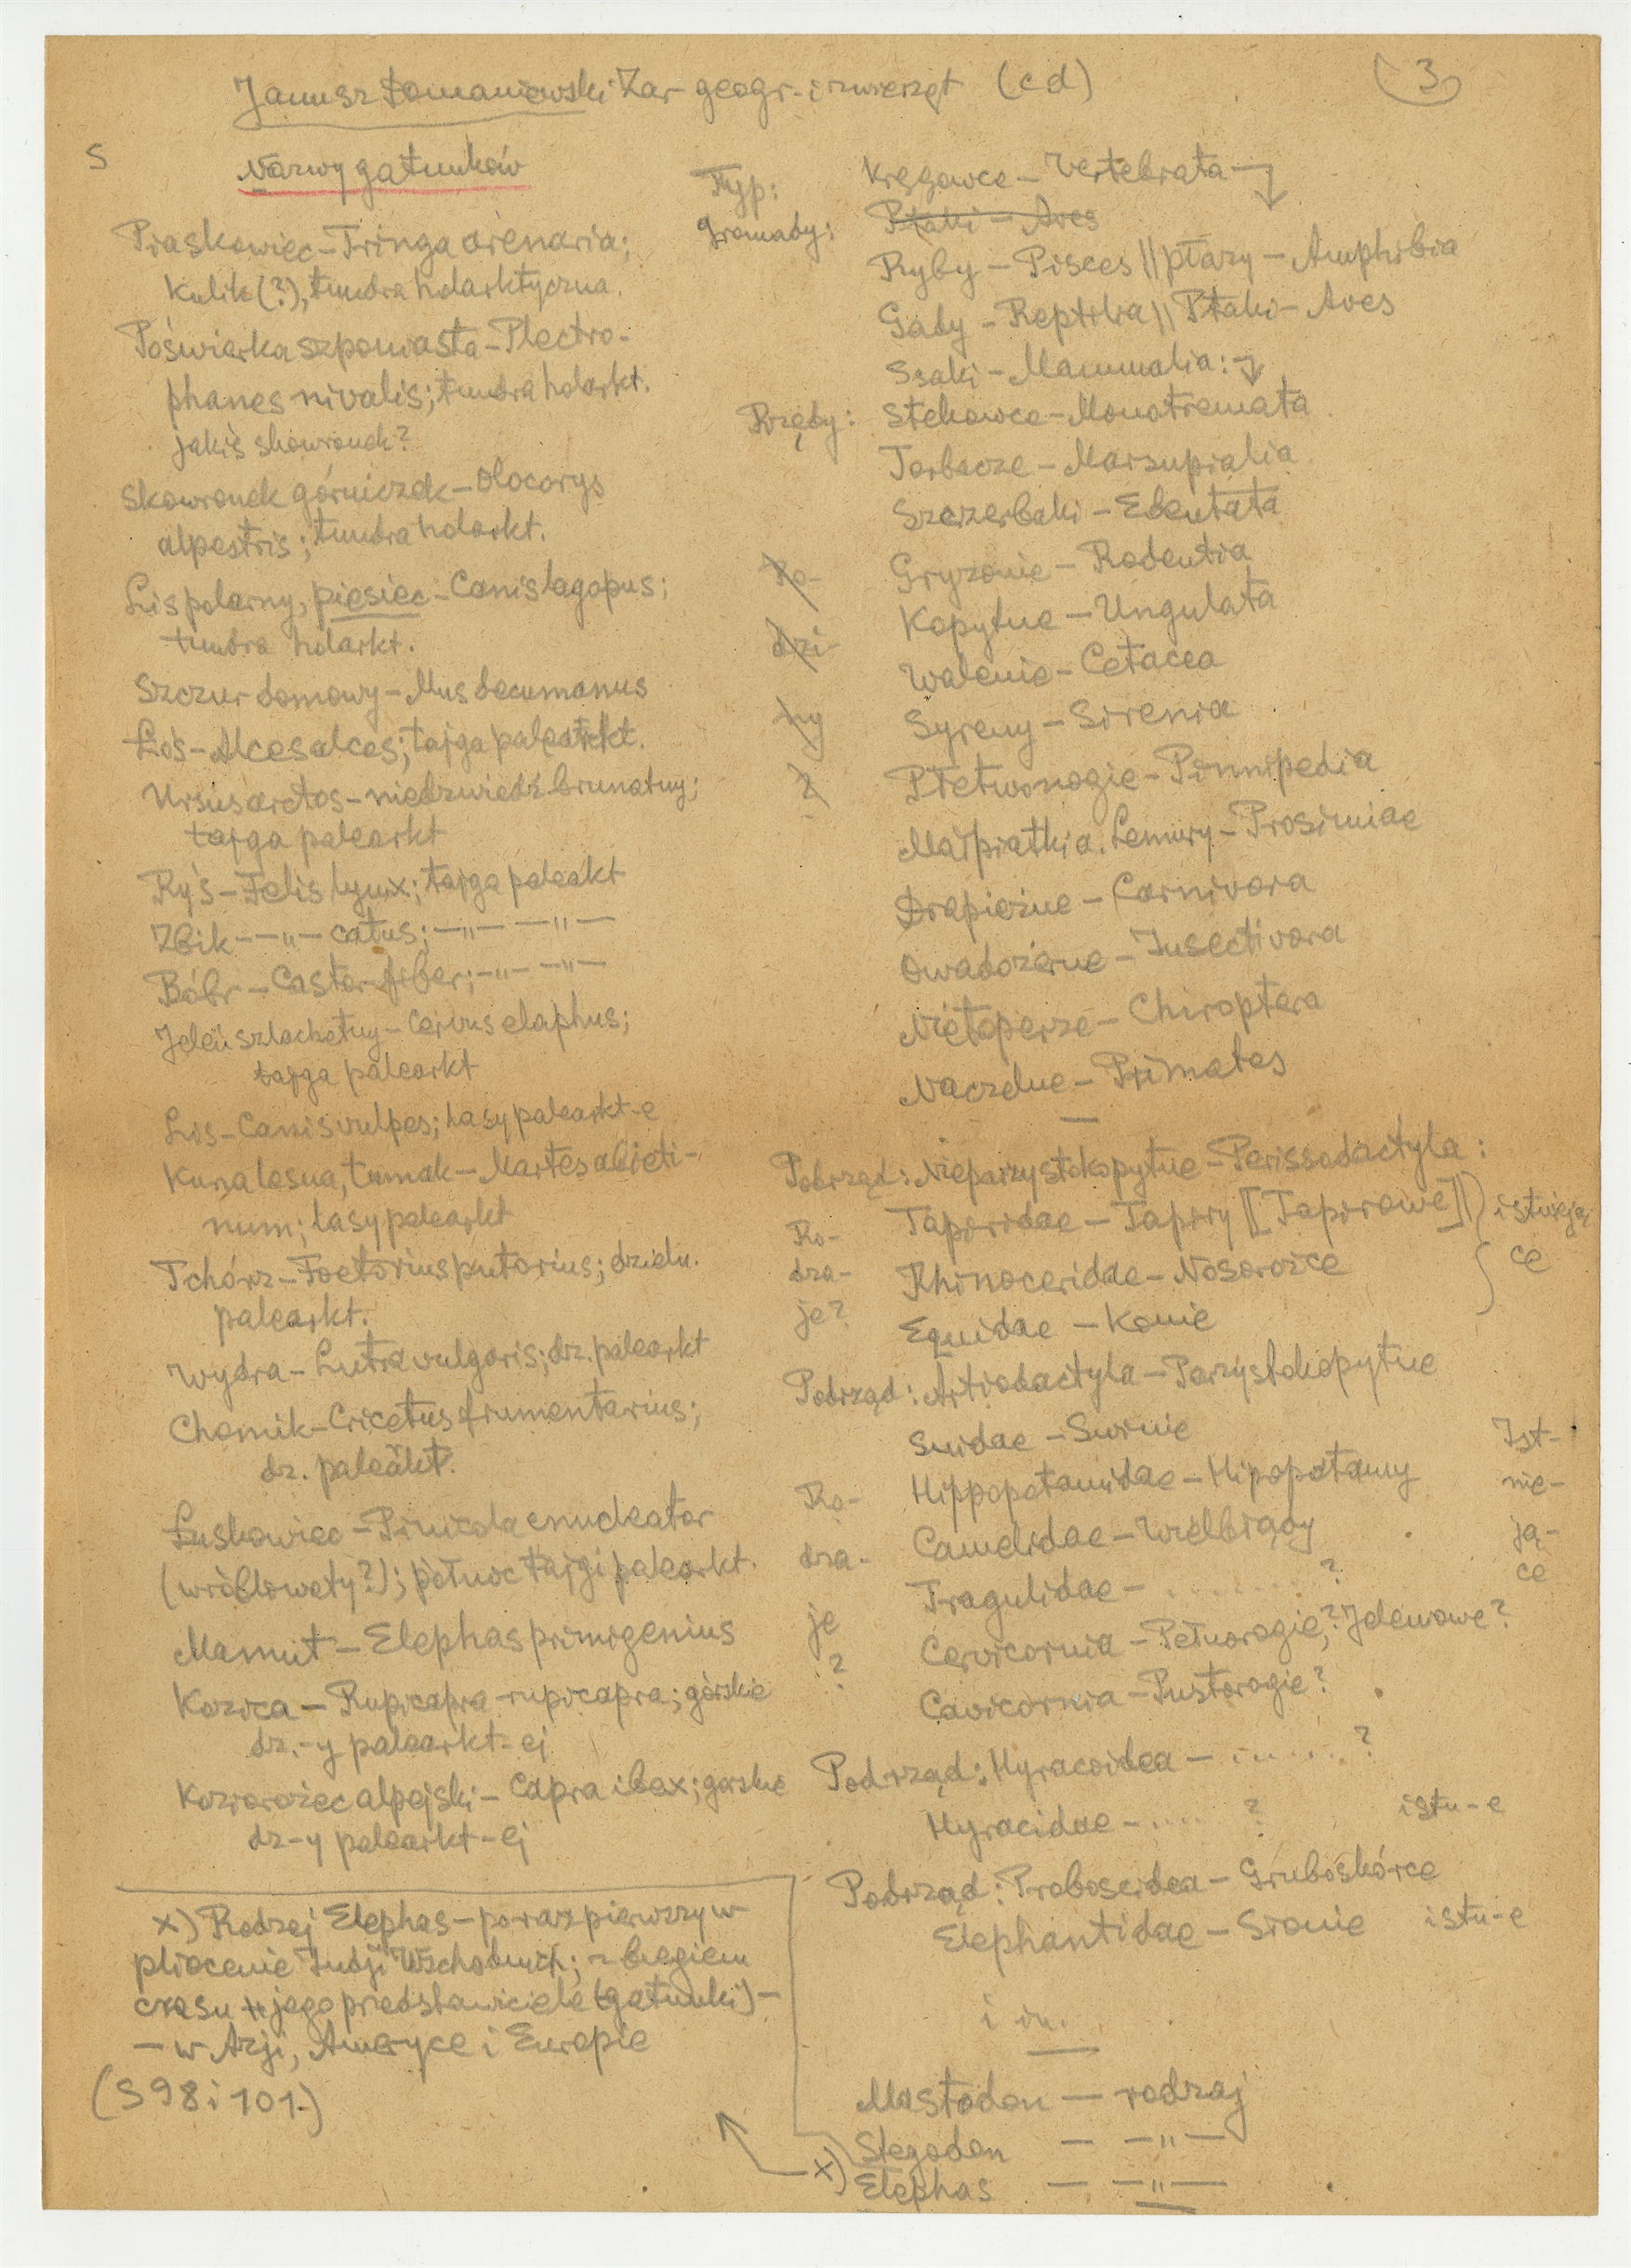 Janusz Domaniewski Zar geogr. i zwierząt (cd)
3
S
Nazwy gatunków
Piaskowiec – Tringa arenaria;
Kulik (?), tundra holarktyczna.
Poświerka szponiasta – Plectro-
phanes nivalis; tundra holarkt.
jakiś skowronek?
Skowronek górniczek – Otocorys
alpestris; tundra holarkt.
Lis polarny, piesiec – Canis lagopus;
tundra holarkt.
Szczur domowy – Mus decumanus
Łoś – Alces alces; tajga palearkt.
Ursus arctos – niedźwiedź brunatny;
tajga palearkt
Ryś – Felis lynx; tajga paleakt
Żbik – – „ – catus; – „ – – „ –
Bóbr – Castor fiber; – „ – – „ –
Jeleń szlachetny – Cervus elaphus;
tajga palearkt
Lis – Canis vulpes; lasy palearkt-e
Kuna leśna, tumak – Martes abieti-
num; lasy palearkt
Tchórz – Foetorius putorius; dzieln.
palearkt.
Wydra – Lutra vulgaris; dz. palearkt
Chomik – Cricetus frumentarius;
dz. paleakt.
Łuskowiec – Pinicola enucleator
(wróblowaty?); północ tajgi palearkt.
Mamut – Elephas primigenius
Kozica – Rupicapra rupicapra; górskie
dz.-y palearkt-ej
Koziorożec alpejski – Capra ibex; górskie
dz-y palearkt-ej
x) Rodzaj Elephas – po raz pierwszy w
pliocenie Indji Wschodnich; z biegiem
czasu jego przedstawiciele (gatunki) –
– w Azji, Ameryce i Europie
(S 98 i 101.)
Typ: Kręgowce – Vertebrata
Gromady: Ptaki – Aves
Ryby – Pisces || płazy – Amphibia
Gady – Reptilia || Ptaki – Aves
Ssaki – Mammalia:
Rzędy: Stekowce – Monotremata
Torbacze – Marsupialia
Szczerbaki – Edentata
Ro- Gryzonie – Rodentia
Kopytne – Ungulata
dzi- Walenie – Cetacea
ny Syreny – Sirenia
? Płetwonogie – Pinnipedia
Małpiatki a. Lemury – Prosimiae
Drapieżne – Carnivora
Owadożerne – Insectivora
Nietoperze – Chiroptera
Naczelne – Primates
Podrząd: Nieparzystokopytne – Perissodactyla:
Tapiridae – Tapiry [[Tapirowe]]
Rhinoceridae – Nosorożce
Equidae – Konie
Ro-
dza-
je?
istnieją
ce
Podrząd: Artiodactyla – Parzystokopytne
Suidae – Świnie
Hippopotamidae – Hipopotamy
Camelidae – Wielbłądy
Tragulidae – . . . . . . . . ?
Cervicornia – Pełnorogie,? Jeleniowe?
Cavicornia – Pustorogie?
Ro-
dza-
je
?
Ist-
nie-
ją-
ce
Podrząd: Hyracoidea – . . . . . . . ?
Hyracidae – . . . . . ? istn-e
Podrząd: Proboscidea – Gruboskórce
Elephantidae – Słonie istn-e
i in.
Mastodon — rodzaj
Stegodon — – „ –
x) Elephas — – „ –